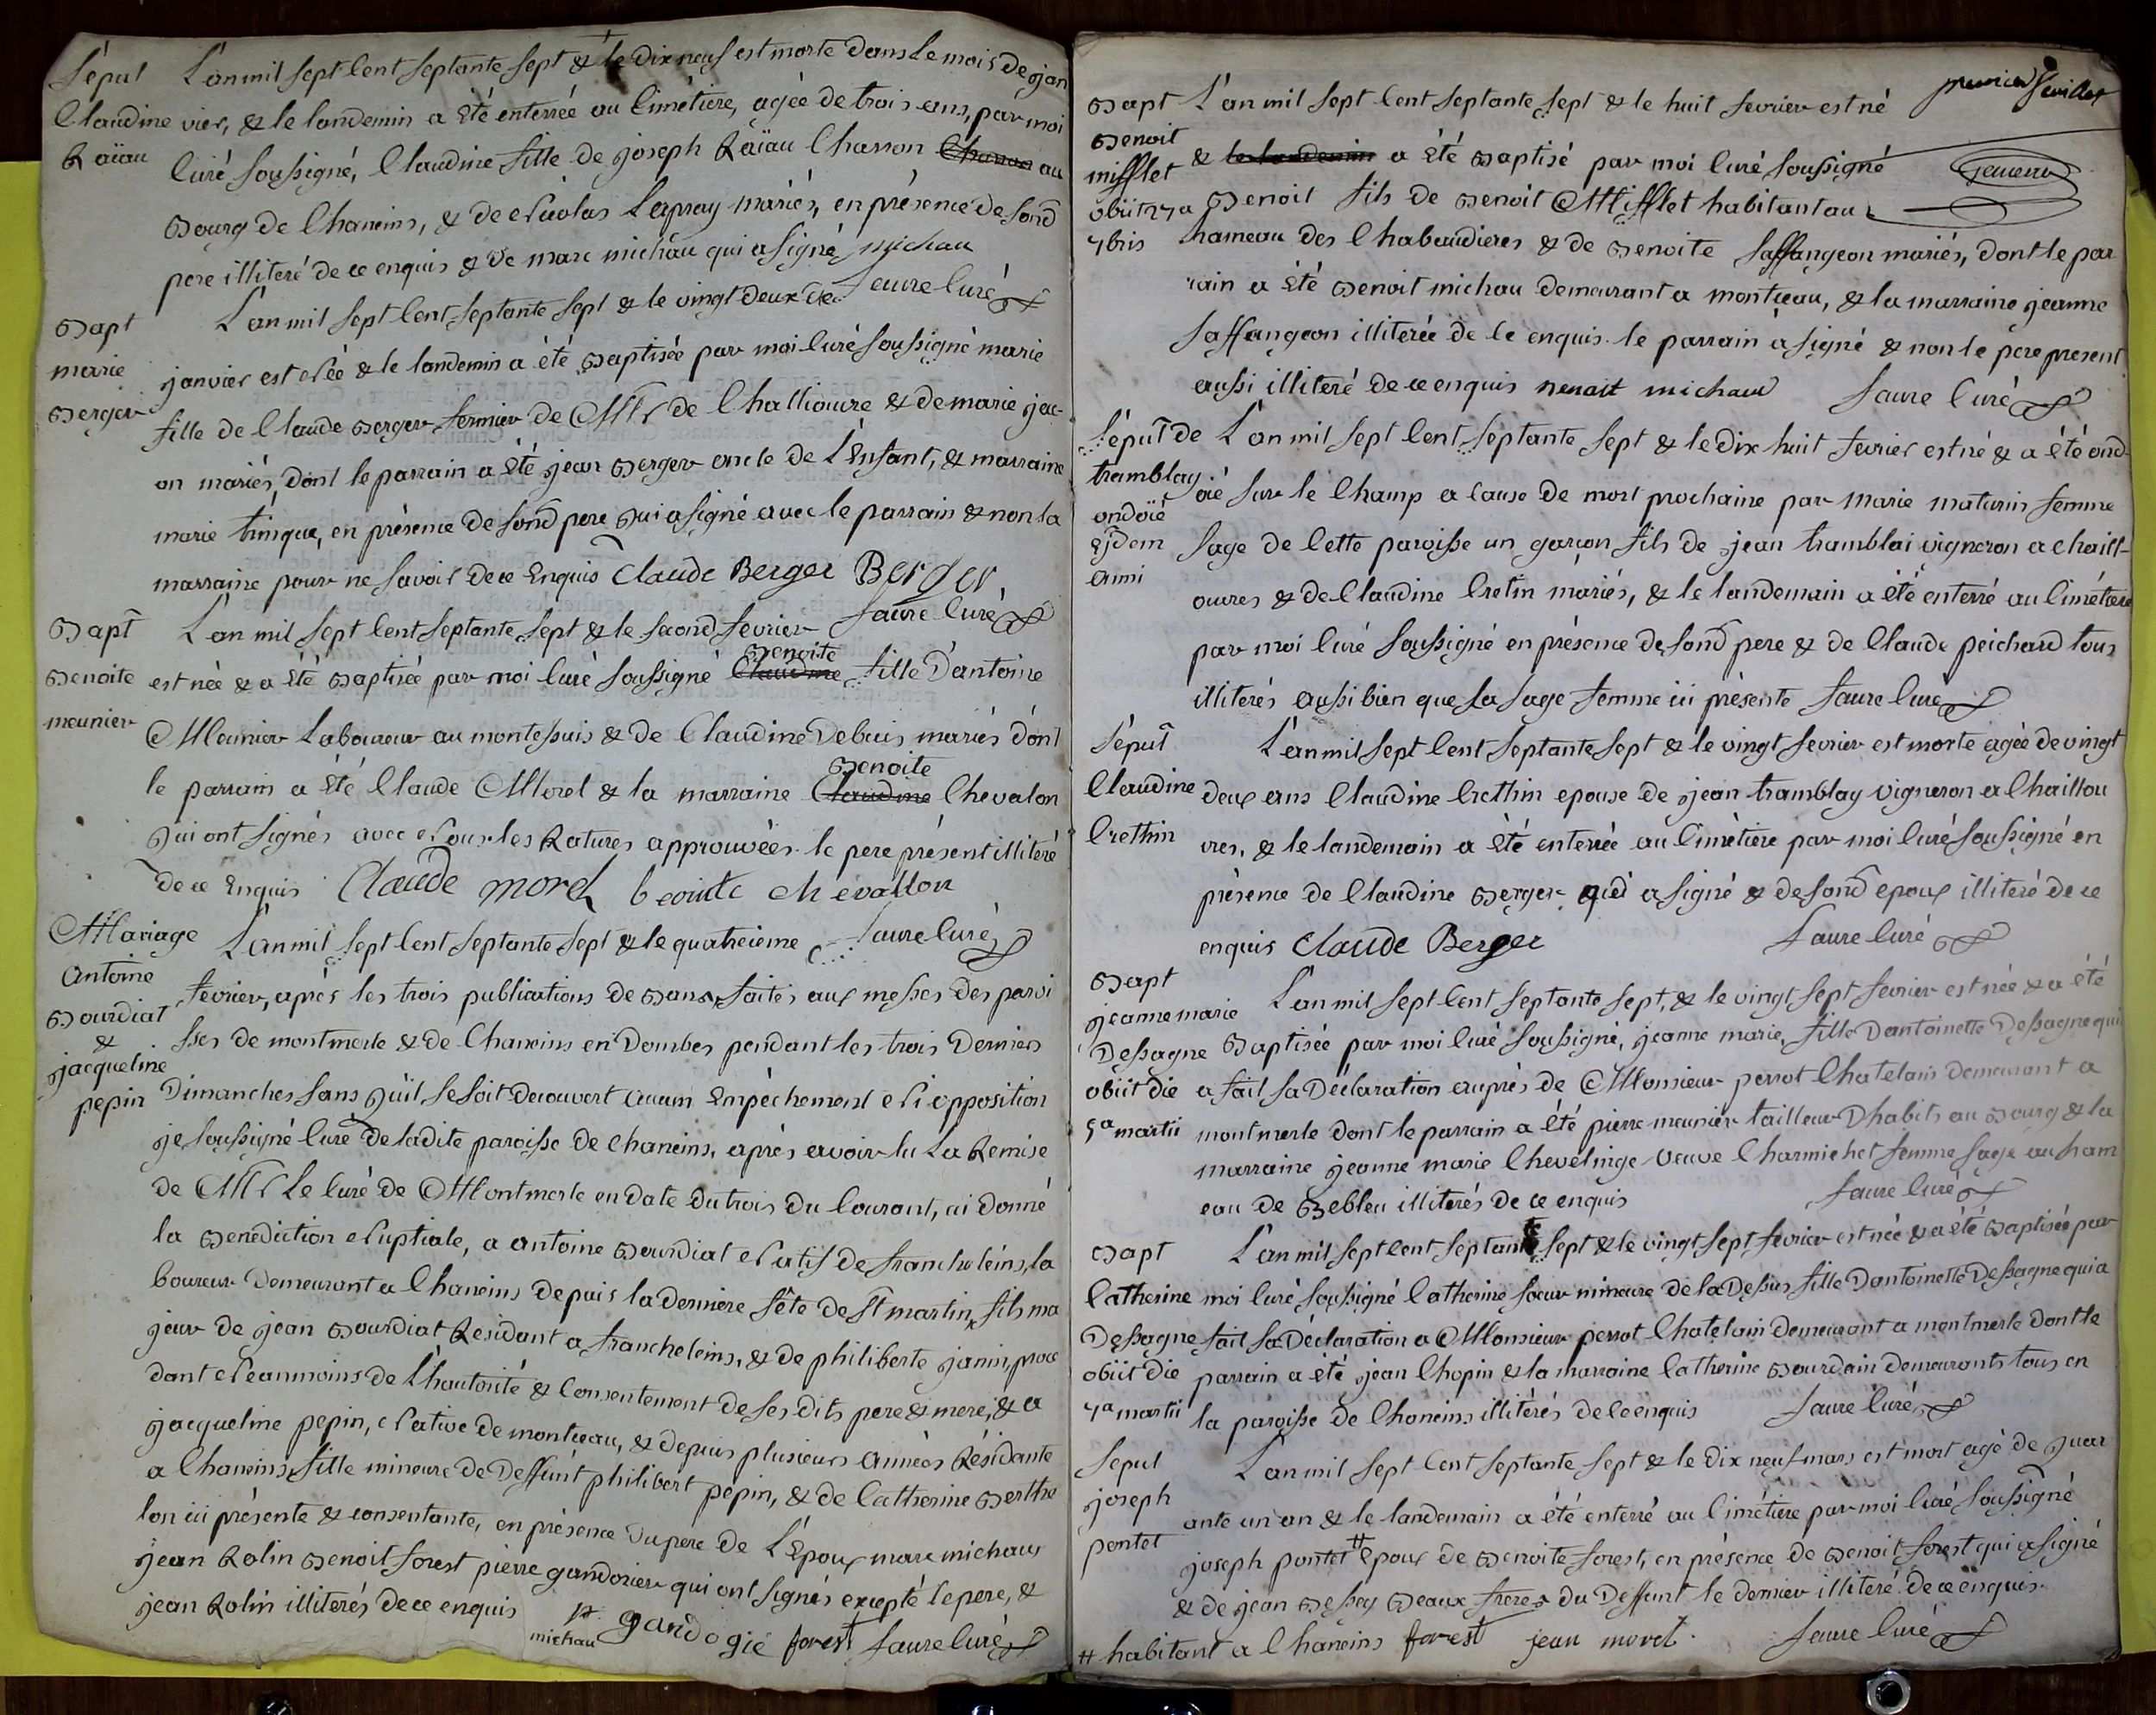 Sépul L'an mil sept Cent septante sept & le dix neuf est morte dans le mois de jan
Claudine vier, & le landemin a été enterrée au Cimétiere, agée de trois ans, par moi
Raïau Curé soussigné, Claudine fille de joseph Raïau Charron au
Bourg de Chaneins, & de Nicolas Lapray mariés, en présence de sond
pere illiteré de ce enquis & de marc michau qui a signé michau
faure Curé
Bapt L'an mil sept Cent septante sept & le vingt deux de
marie janvier est Née & le landemin a été Baptisée par moi Curé soussigné marie
Berger fille de Claude Berger fermier de Mr de Challiouvre & de marie jac-
on mariés, dont le parrain a été jean Berger oncle de L'Enfant, & marraine
marie trinque, en présence de sond pere Qui a signé avec le parrain & non la
marraine pour ne savoir de ce Enquis Claude Berger Berger
faure Curé
Bapt L'an mil sept Cent septante sept & le second fevrier
Benoite est née & a été Baptisée par moi Curé soussigné Benoite fille D'antoine
meunier Meunier Laboureur au montessuis & de Claudine Debuis mariés dont
le parrain a été Claude Morel & la marraine Benoite Chevalon
Qui ont signés avec Nous les Ratures approuvées le pere présent illiteré
de ce Enquis Claude morel benoite chevallon
faure Curé
Mariage L'an mil sept Cent septante sept & le quatrieime
antoine fevrier, aprés les trois publications de Bans, faites aux messes des paroi
Bourdiat sses de montmerle & de Chaneins en Dombes pendant les trois Derniers
& jacqueline Dimanches sans Qu'il se soit Decouvert Aucun Empêchement Ni opposition
pepin je soussigné Curé de la dite paroisse de Chaneins, aprés avoir lu La Remise
de Mr Le Curé de Montmerle en Date du trois du Courant, ai donné
la Benédiction Nuptiale, a antoine Bourdiat Natif de francheleins, la
boureur Demeurant a Chaneins depuis la derniere fête de St martin, fils ma
jeur de jean Bourdiat Residant a francheleins, & de philiberte janin, proce
dant Néanmoins de L'hautorité & Consentement de ses dits pere & mere, & a
jacqueline pepin, Native de montceau, & depuis plusieurs Années Résidante
a Chaneins, fille mineure de Deffunt philibert pepin, & de Catherine Berthe
lon ici présente & consentante, en présence du pere de L'Epoux marc michaux
jean Rolin Benoit forest pierre gandozier qui ont signés excepté le pere, &
jean Rolin illiterés de ce enquis michau p. gandogié forest faure Curé
premier feuillet
Bapt L'an mil sept Cent septante sept & le huit fevrier est né
Benoit
mifflet & le landemin a été Baptisé par moi Curé soussigné
obiit 27a Benoit fils de Benoit Mifflet habitant au
7bris hameau des Chabaudieres & de Benoite Saffangeon mariés, dont le par
rain a été Benoit michau demeurant a montceau, & la marraine jeanne
Saffangeon illiterée de Ce enquis le parrain a signé & non le pere present
aussi illiteré de ce enquis benoit michaud faure Curé
Sépult de L'an mil sept Cent septante sept & le dix huit fevrier est né & a été ond-
tramblay oié sur le Champ a Cause de mort prochaine par marie maturin femme
ondoïé
ejdem sage de Cette paroisse un garçon fils de jean tramblai vigneron a chaill-
anni ouvres & de Claudine Cretin mariés, & le landemain a été enterré au Cimétiere
par moi Curé soussigné en présence de sond pere & de Claude peichard tous
illiterés aussi bien que la sage femme ici présente faure Curé
Sépult L'an mil sept Cent septante sept & le vingt fevrier est morte agée de vingt
Claudine deux ans Claudine Crethin epouse de jean tramblay vigneron a Chaillou
Crethin vres, & le landemain a été enterrée au Cimétiere par moi Curé soussigné en
présence de Claudine Berger qui a signé & de sond epoux illiteré de ce
enquis Claude Berger faure Curé
Bapt
jeanne marie L'an mil sept Cent septante sept, & le vingt sept fevrier est née & a été
Dessagne Baptisée par moi Curé soussigné, jeanne marie, fille D'antoinette Dessagne qui
obiit die a fait sa Déclaration auprés de Monsieur perrot Chatelain demeurant a
5a martii montmerle dont le parrain a été pierre meunier tailleur D'habits au Bourg & la
marraine jeanne marie Chevelinge veuve Charmichet femme sage au ham
eau de Bebleu illiterés de ce enquis faure Curé
Bapt L'an mil sept Cent septante sept & le vingt sept fevrier est née & a été Baptisée par
Catherine moi Curé soussigné Catherine soeur mineure de la Dessus fille D'antoinette Dessagne qui a
Dessagne fait sa Déclaration a Monsieur perrot Chatelain demeurant a montmerle dont le
obiit die parrain a été jean Chopin & la marraine Catherine Bourdain demeurants tous en
7a martii la paroisse de Chaneins illitérés de Ce enquis faure Curé
Sepul L'an mil sept Cent septante sept & le dix neuf mars est mort agé de Quar
joseph ante un an & le landemain a été enterré au Cimétiere par moi Curé soussigné
pontet joseph pontet # epoux de Benoite forest, en présence de Benoit forest qui a signé
& de jean Bessey Beaux freres du Deffunt le dernier illiteré de ce enquis
# habitant a Chaneins forest jean morel faure Curé